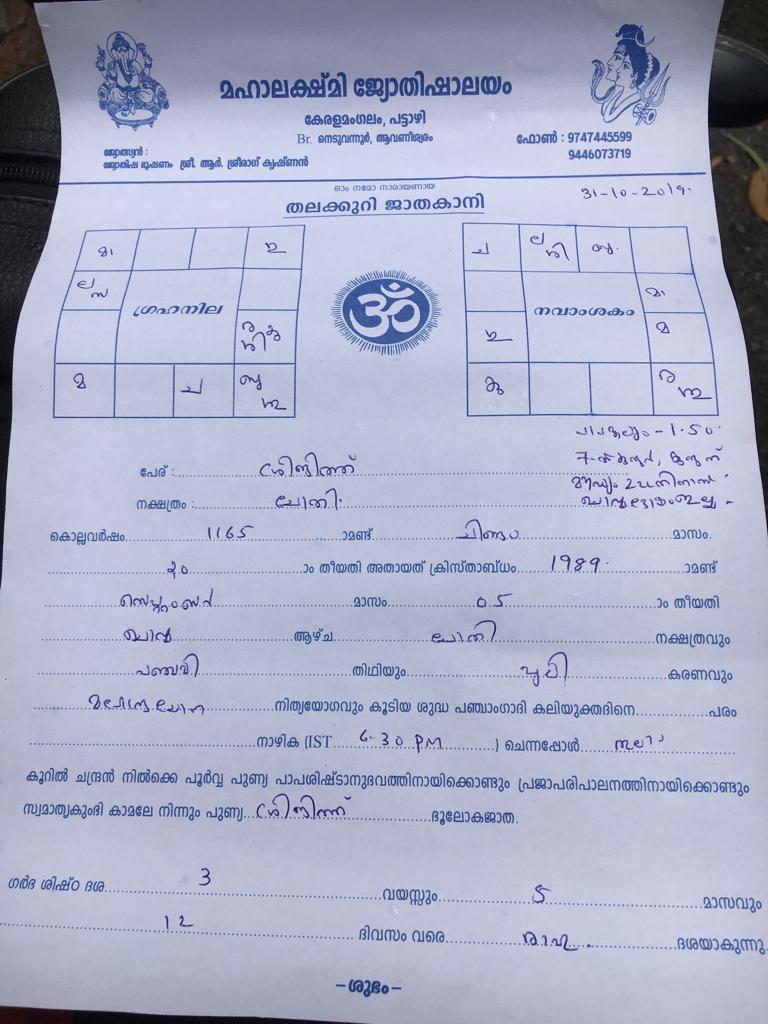 മഹാലക്ഷ്മി ജ്യോതിഷാലയം
കേരളമംഗലം, പട്ടാഴി
Br. നെടുവന്നൂർ, ആവണീശ്വരം
ഫോൺ : 9747445599
9446073719
ജ്യോത്സ്യൻ :
ജ്യോതിഷ ഭൂഷണം ശ്രീ. ആർ. ശ്രീരാഗ് കൃഷ്ണൻ
ഓം നമോ നാരായണായ
31-10-2019
തലക്കുറി ജാതകാനി
മാ
ല
ഗ്രഹനില
ര കു
ശി
മ
ച
ബു
ച
ല
ശി
ബു
നവാംശകം
മാ
മ
കു
ര
ॐ
1.50
പേര് : ശ്രീജിത്ത്
നക്ഷത്രം : ചോതി
കൊല്ലവർഷം 1165 ാമണ്ട് ചിങ്ങം മാസം.
20 ാം തീയതി അതായത് ക്രിസ്താബ്ധം 1989 ാമണ്ട്
സെപ്റ്റംബർ മാസം 05 ാം തീയതി
ആഴ്ച ചോതി നക്ഷത്രവും
പഞ്ചമി തിഥിയും പുലി കരണവും
നിത്യയോഗവും കൂടിയ ശുദ്ധ പഞ്ചാംഗാദി കലിയുക്തദിനെ പരം
നാഴിക (IST 6-30 PM ) ചെന്നപ്പോൾ തുലാ
കൂറിൽ ചന്ദ്രൻ നിൽക്കെ പൂർവ്വ പുണ്യ പാപശിഷ്ടാനുഭവത്തിനായിക്കൊണ്ടും പ്രജാപരിപാലനത്തിനായിക്കൊണ്ടും
സ്വമാതൃകുംഭി കാമലേ നിന്നും പുണ്യ ശ്രീജിത്ത് ഭൂലോകജാത.
ഗർദ ശിഷ്ഠ ദശ 3 വയസ്സും 5 മാസവും
12 ദിവസം വരെ രാഹു ദശയാകുന്നു.
-ശുഭം-